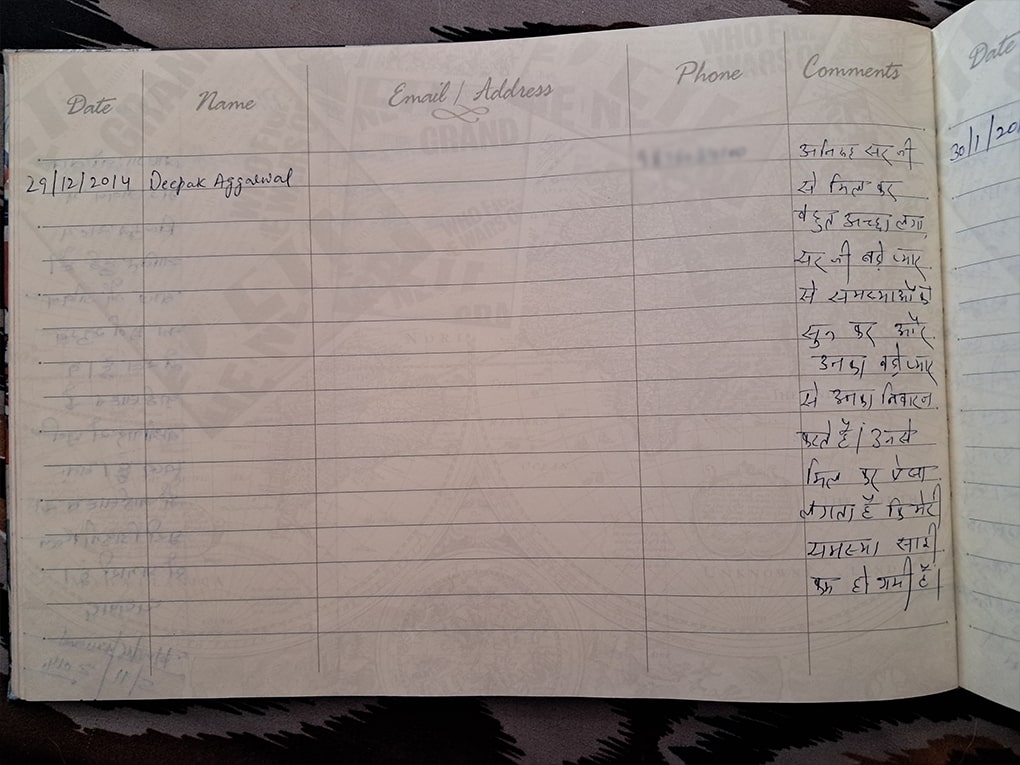 Date Name Email / Address Phone Comments
Date
29/12/2014 Deepak Aggarwal
30/1/20
सर जी
से मिल कर
बहुत अच्छा लगा
सर जी बड़े प्यार
से समस्याओं को
सुन कर और
उनका बड़े प्यार
से उनका निवारन
करते हैं। उनसे
मिल कर ऐसा
लगता है कि मेरी
समस्या सारी
हो गयी है।